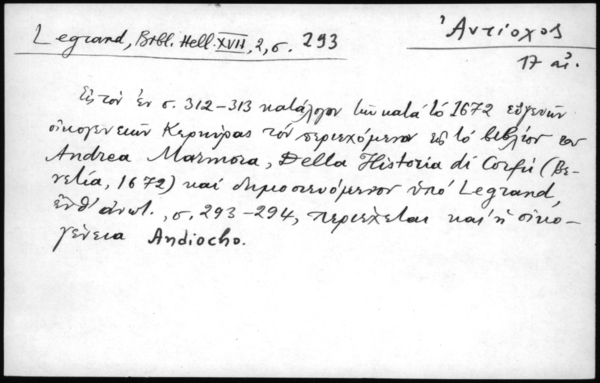 Legrand, Bibl. Hell. XVII, 2, σ. 293
Ἀντίοχος
17 αἰ.
Εἰς τὸν ἐν σ. 312-313 κατάλογον τῶν κατὰ τὸ 1672 εὐγενῶν
οἰκογενειῶν Κερκύρας τὸν περιεχόμενον εἰς τὸ βιβλίον του
Andrea Marmora, Della Historia di Corfù (Βε-
νετία, 1672) καὶ δημοσιευόμενον ὑπὸ Legrand,
ἔνθ' ἀνωτ., σ. 293-294, περιέχεται καὶ ἡ οἰκο-
γένεια Andiocho.